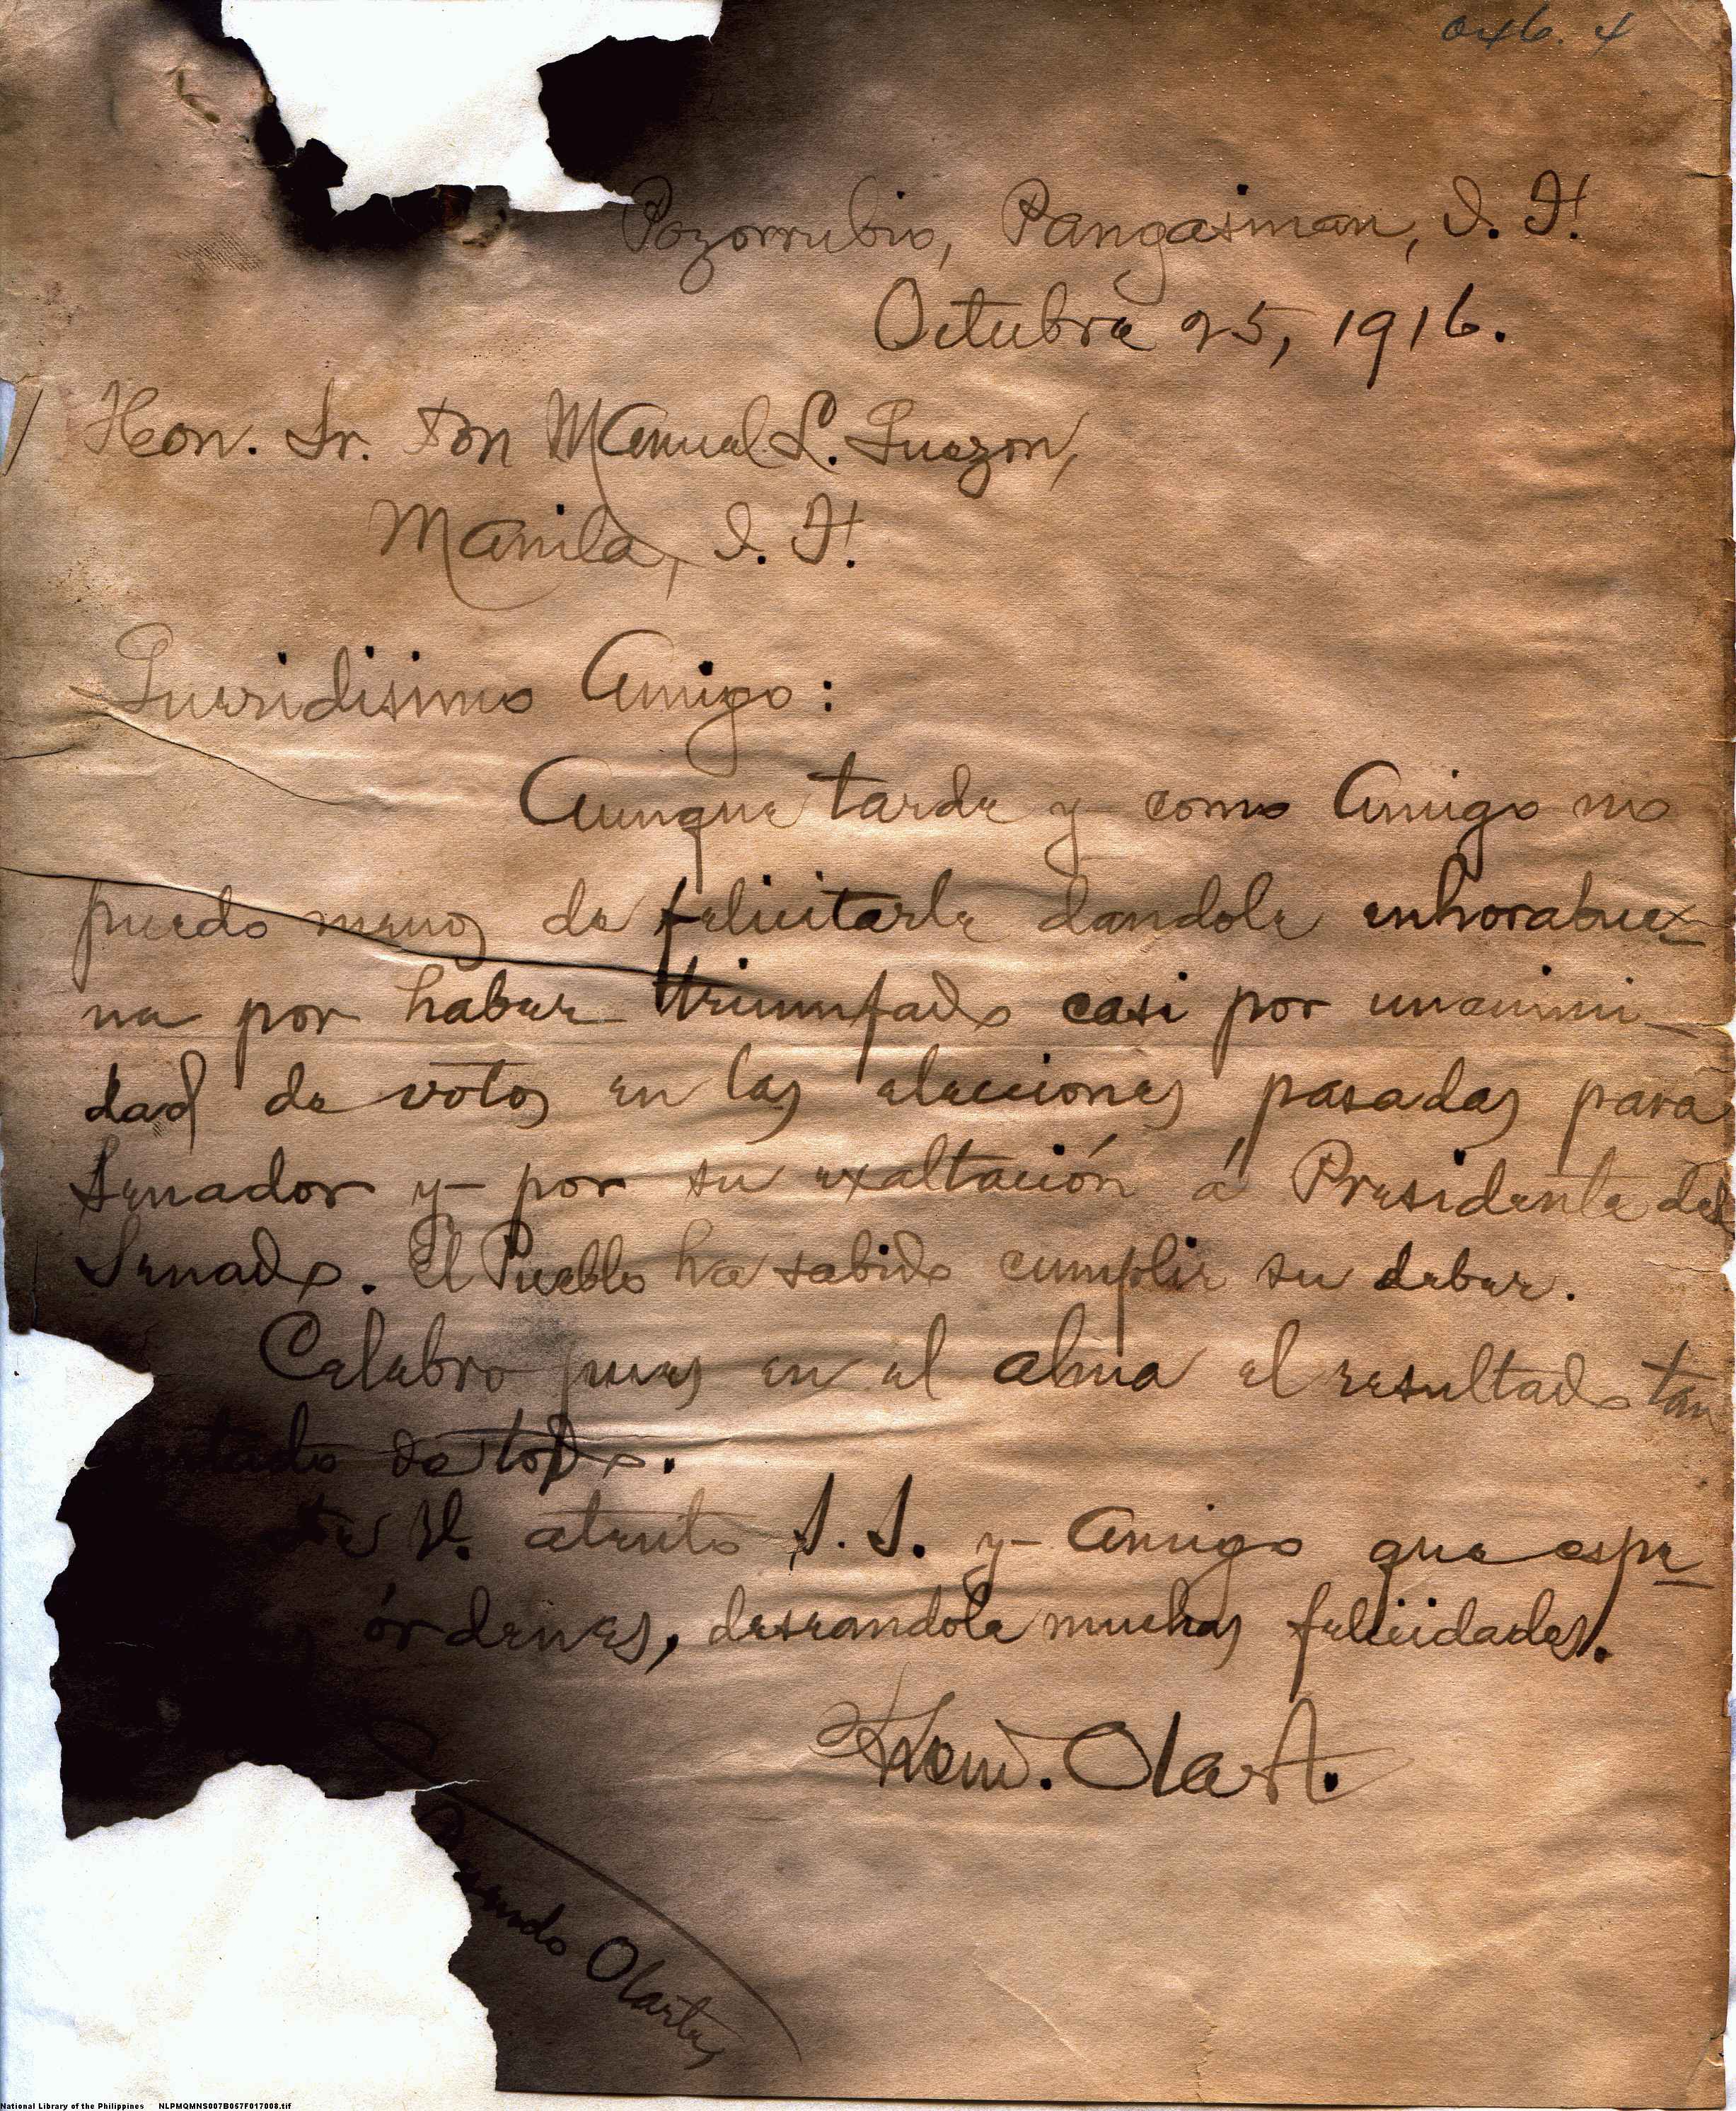 Pozorrubio, Pangasinan, I. F.
Octubre 25, 1916.
Hon. Sr. Don Manuel L. Quezon,
Manila, I. F.
Queridisimo Amigo:
Aunque tarde y como Amigo no
puedo menos de felicitarle dandole enhorabue-
na por haber triumfado casi por unanimi-
dad de votos en las elecciones pasadas para
Senador y por su exaltación á Presidente del
Senado. El Pueblo ha sabido cumplir su deber.
Celebro pues en el alma el resultado tan
de todos.
de V. atento S. S. y Amigo que espe-
órdenes, deseandole muchas felicidades.
Olart.
Olartes
National Library of the Philippines NLPMQMNS007B057F017008.tif